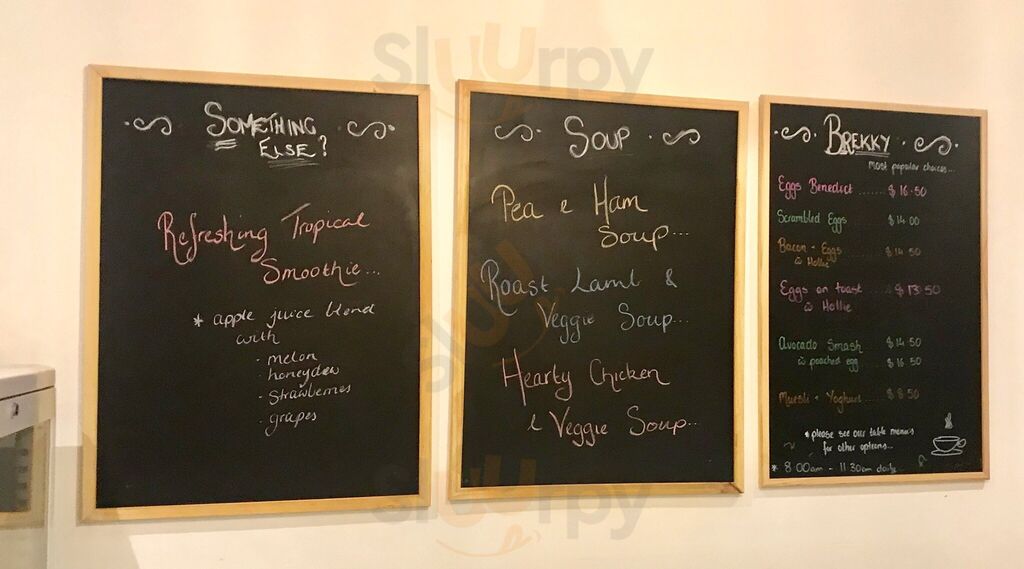 Sluurpy
SOMETHING
ELSE?
Refreshing Tropical
Smoothie...
* apple juice blend
with
- melon
- honeydew
- strawberries
- grapes
SOUP
Pea & Ham
Soup...
Roast Lamb &
Veggie Soup...
Hearty Chicken
& Veggie Soup...
BREKKY
most popular choices...
Eggs Benedict ....... $16.50
Scrambled Eggs $14.00
Bacon + Eggs $14.50
w Hollie
Eggs on toast $13.50
w Hollie
Avocado Smash $14.50
w poached egg $16.50
Muesli + Yoghurt $8.50
* please see our table menus
for other options...
* 8.00am - 11.30am daily
Sluurpy
Sluurpy